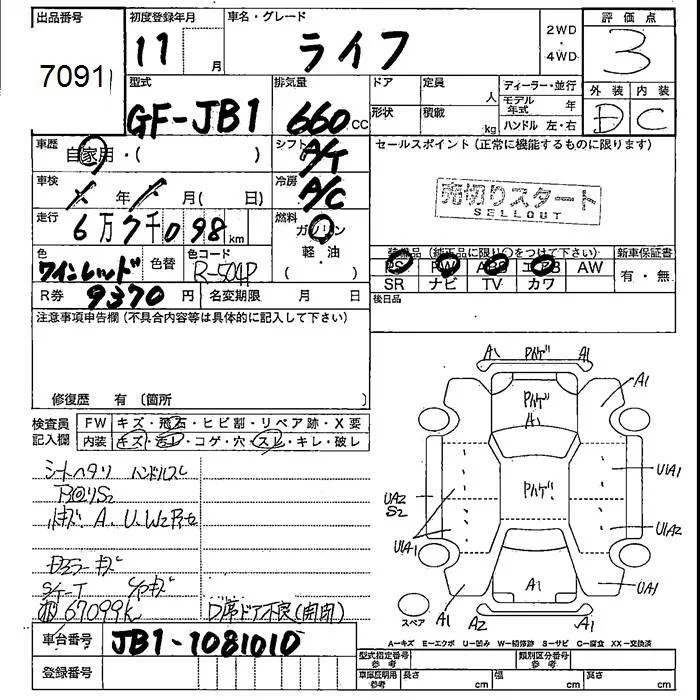 出品番号
7091
初度登録年月
11 月
車名・グレード
ライフ
2WD
・
4WD
評価点
3
型式
GF-JB1
排気量
660 cc
ドア
定員
人
形状
積載
kg
ディーラー・並行
モデル年式 年
ハンドル 左・右
外装 内装
D C
車歴
自家用・( )
シフト
A/T
セールスポイント (正常に機能するものに限ります)
売切りスタート
SELLOUT
車検
年 月( 日)
冷房
A/C
走行
6万7千098 km
燃料
ガソリン
軽・油
( )
色
ワインレッド
色替
色コード
R-504P
装備品 (純正品に限り○をつけて下さい)
PS PW ABS エアB AW
SR ナビ TV カワ
新車保証書
有・無
R券 9370 円
名変期限 月 日
後日品
注意事項申告欄 (不具合内容等は具体的に記入して下さい)
修復歴 有 (箇所 )
検査員
記入欄
FW キズ・飛石・ヒビ割・リペア跡・X要
内装 キズ・汚レ・コゲ・穴・スレ・キレ・破レ
シートヘタリ ハンドルスレ
A、U、W2
67099K
D席ドア不良(開閉)
A1
A1
A1
A1
UA2
S2
U1A1
U1A1
U1A2
UA1
A1
A1
A2
A1
スペア
A=キズ E=エクボ U=凹み W=補修跡 S=サビ C=腐食 XX=交換済
車台番号 JB1-1081010
登録番号
型式指定番号
参考
類別区分番号
参考
車庫証明用
参考
長さ cm
幅 cm
高さ cm